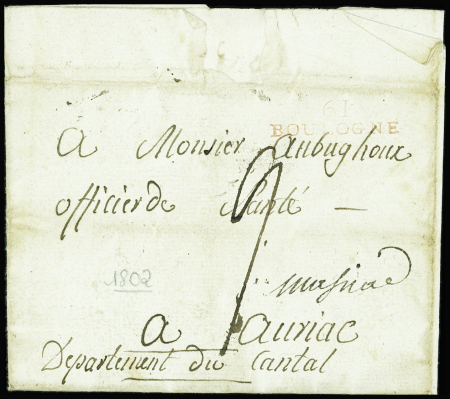 61
BOULOGNE
A Monsier aubughoux
officier de Santé —
1802
massiac
a auriac
Departement du Cantal